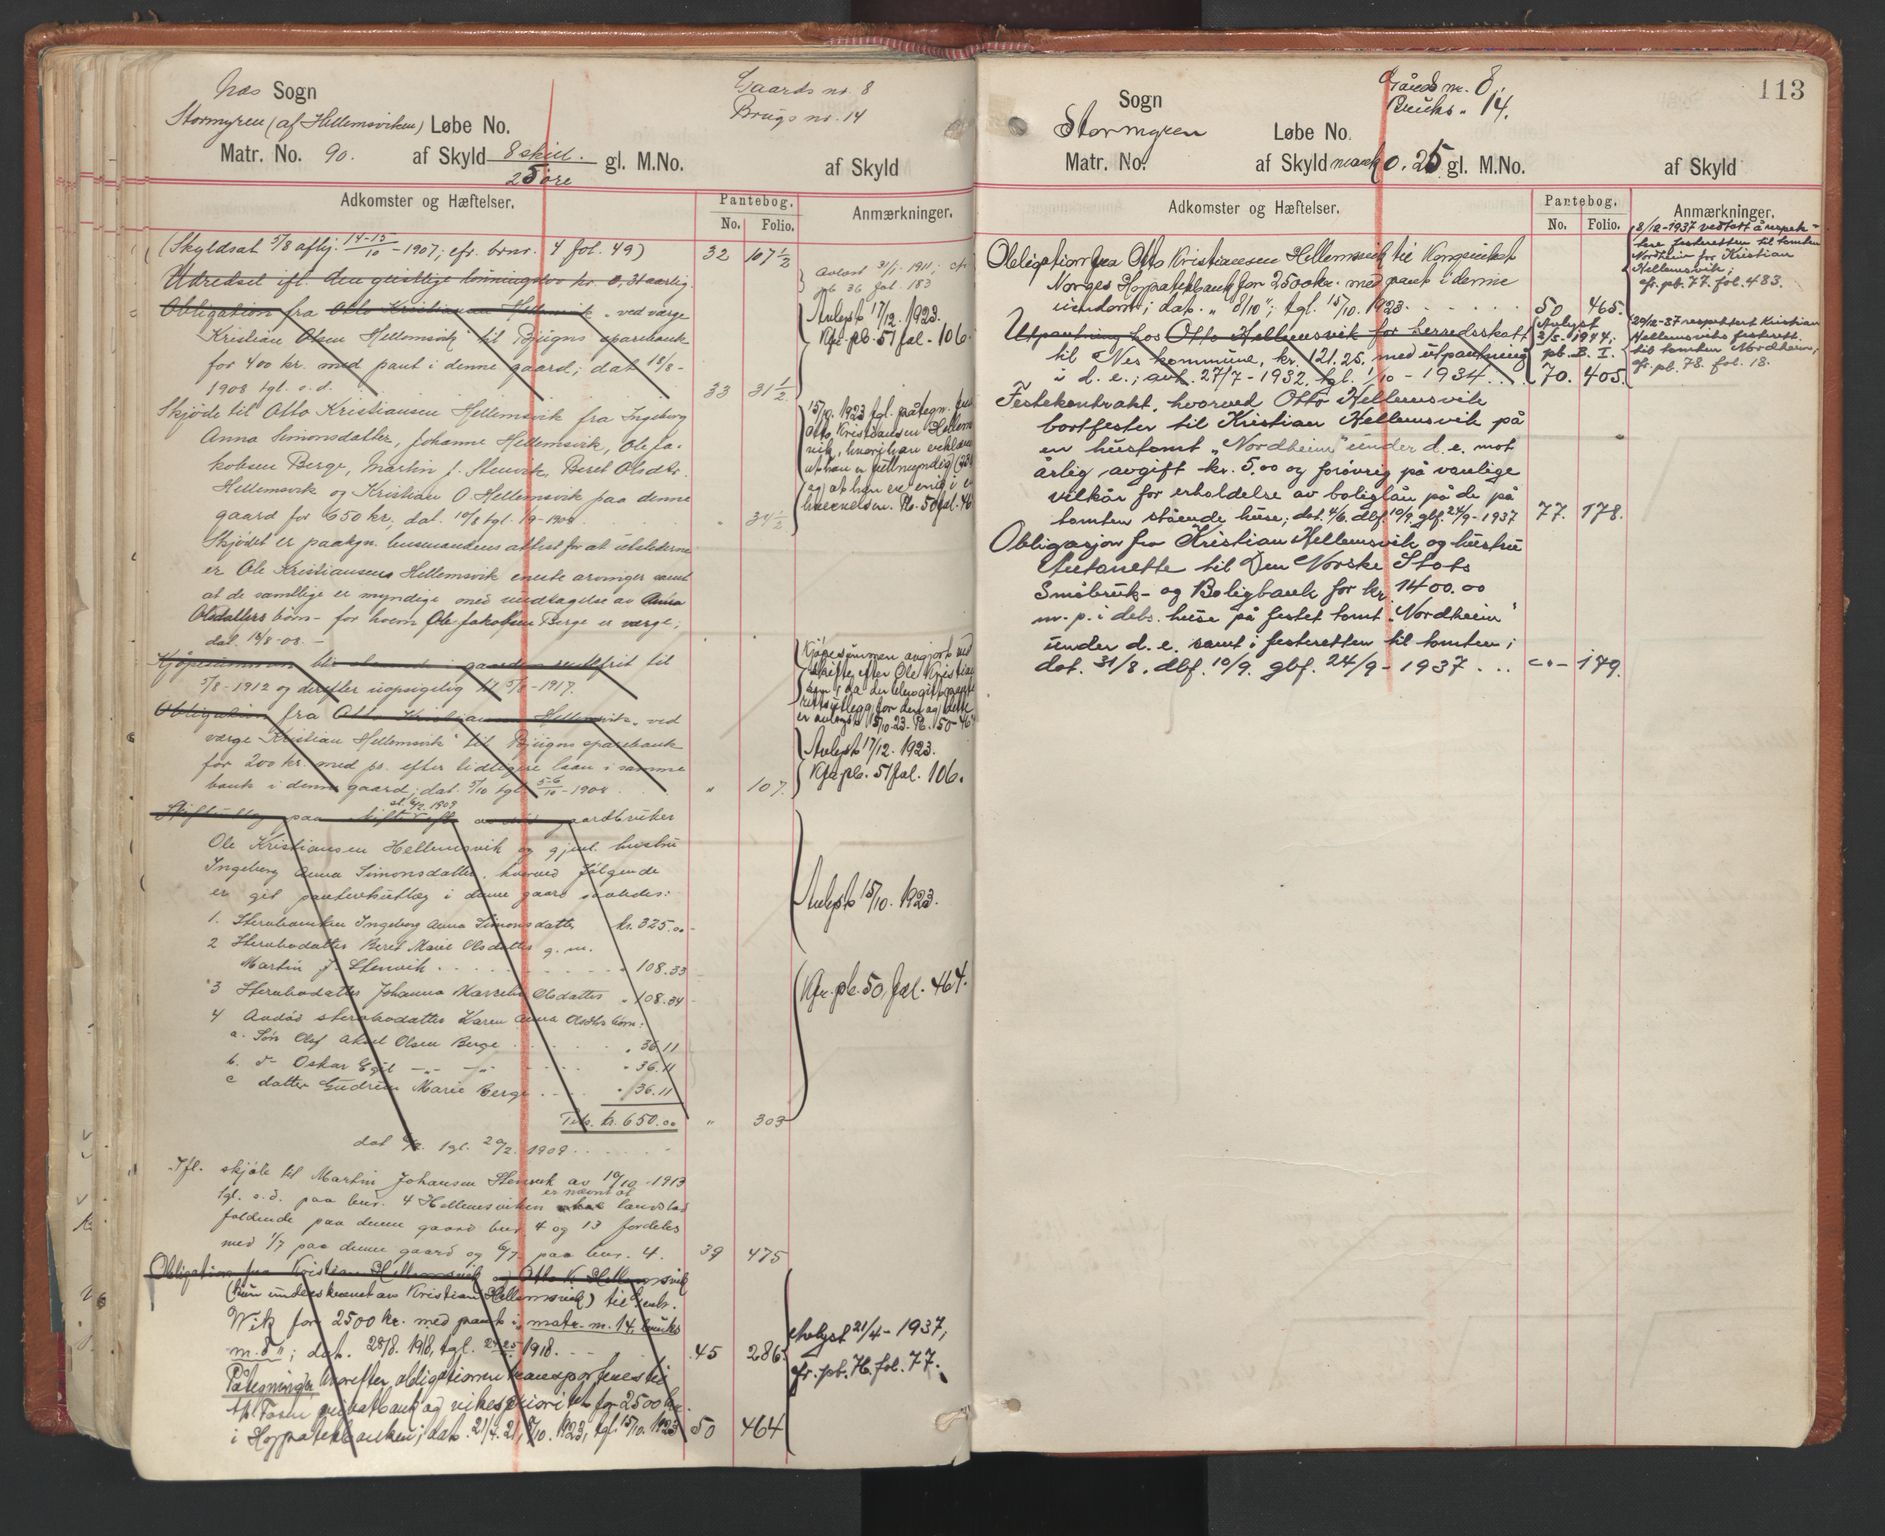 Næs Sogn
Gaards nr. 8
Brugs nr. 14
Stormyren (af Hellemsviken) Løbe No.
Matr. No. 90. af Skyld 8 skill. gl. M.No. af Skyld
25 øre
Adkomster og Hæftelser.
Pantebog.
No. Folio.
Anmærkninger.
(Skyldsat 5/8 aflyj. 14-15/10 - 1907; cfr. brnr. 4 fol. 49) 32 107 1/2
Udredsel ifl. den geistlige lønningslov kr. 0,31 aarlig
Avløst 31/1 1911; cfr.
pb 36 fol. 183
Obligation fra Otto Kristiansen Hellemsvik "ved værge
Kristian Olsen Hellemsvik" til Bjugns sparebank
for 400 kr. med pant i denne gaard; dat 18/8 -
1908 tgl. s. d. 33 31 1/2
Avlyst 17/12. 1923.
Kfr. pb. 51 fol. 106.
Skjøde til Otto Kristiansen Hellemsvik fra Ingeborg
Anna Simonsdatter, Johanne Hellemsvik, Ole Ja-
kobsen Berge, Martin J. Stenvik, Beret Olsdtr.
Hellemsvik og Kristian O. Hellemsvik paa denne
gaard for 650 kr. dat. 10/8 tgl. 1/9 - 1908. " 34 1/2
15/10. 1923 tgl. påtegn. fra
Otto Kristiansen Hellems
vik, hvori han erklærer
at han er fuldmyndig
og at han er enig i
Pb. 50 fol. 46
Skjødet er paategn. lensmandens attest for at utstederne
er Ole Kristiansens Hellemsvik eneste arvinger samt
at de samtlige er myndige med undtagelse av Anna
Olsdatters børn - for hvem Ole Jakobsen Berge er værge;
dat. 13/8 - 08. -
Kjøpesummen blir staaende i gaarden rentefrit til
5/8 - 1912 og derefter uopsigelig til 5/8 - 1917.
Kjøpesummen avgjort ved
skifte efter Ole Kristian
sen, da der blev git pante
rettsutlegg for den og dette
er avlyst 15/10. 23. Pb. 50 - 464
Obligation fra Otto Kristiansen Hellemsvik "ved
værge Kristian Hellemsvik" til Bjugns sparebank
for 200 kr. med pr. efter tidligere laan i samme
bank i denne gaard; dat. 5/10 tgl. 5-6/10 - 1908 " 107.
Avlyst 17/12. 1923.
Kfr. pb. 51 fol. 106.
Skifteutlæg paa skifte efter avdød gaardbruker
sl. 6/2. 1909
Ole Kristiansen Hellemsvik og gjenl. hustru
Ingeborg Anna Simonsdatter, hvorved følgende
er git panteretsutlæg i denne gaard saaledes:
1. Sterboenken Ingeborg Anna Simonsdatter kr. 325.00
2 Sterbodatter Beret Marie Olsdatter g. m.
Martin J. Stenvik " 108.33
3 Sterbodatter Johanna Olsdatter " 108.34
4 Avdød sterbodatter Karen Anna Olsdtrs børn:
a. Søn Olaf Aksel Olsen Berge " 36.11
b. d- Oskar Egil -"- -"- " 36.11
c datter Gudrun Marie Berge " 36.11
Tils. kr. 650.00 " 303
Avlyst 15/10. 1923.
Kfr. pb. 50, fol. 464.
dat 6/2. tgl. 20/2. 1909
Ifl. skjøte til Martin Johansen Stenvik av 10/10 - 1913
tgl. s. d. paa bnr. 4 Hellemsviken er nævnt at landslod
faldende paa denne gaard bnr. 4 og 13 fordeles
med 1/7 paa denne gaard og 6/7 paa bnr. 4. 39 475
Obligation fra Kristian Hellemsvik og Otto K. Hellemsvik
(kun underskrevet av Kristian Hellemsvik) til
Wik for 2500 kr. med pant i "matr. nr. 14, bruks
nr. 8"; dat. 28/8. 1918, tgl. 1918. 45 286.
Påtegninger hvorefter obligationen transporteres til
A/s Fosen privatbank og viker prioritet for 2500 kr.
i Hypotekbanken; dat. 21/4. 21, 8/10. 1923, tgl. 15/10. 1923 50 464
Avlyst 21/4 - 1937,
cfr. pb. 76. fol. 77.
113
Gårds nr. 8,
Bruks " 14.
Sogn
Stormyren Løbe No.
Matr. No. af Skyld mark 0.25 gl. M.No. af Skyld
Adkomster og Hæftelser.
Pantebog.
No. Folio.
Anmærkninger.
Obligation fra Otto Kristiansen Hellemsvik til Kongeriket
Norges Hypotekbank for 2500 kr. med pant i denne
eiendom; dat. " 8/10 "; tgl. 15/10. 1923 50 465.
8/12 - 1937 vedtatt å respek-
tere festeretten til tomten
Nordheim for Kristian
Hellemsvik;
cfr. pb. 77. fol. 483.
Utpantning hos Otto Hellemsvik for herredsskatt
til Nes kommune, kr. 121.25. med utpantning
i d. e.; avh. 27/7 - 1932, tgl. 1/10 - 1934 70. 405.
Avlyst
2/5 - 1944;
pb. B. I.
29/12 - 37 respektert Kristian
Hellemsviks festerett
til tomten Nordheim;
cfr. pb. 78. fol. 18.
Festekontrakt, hvorved Otto Hellemsvik
bortfester til Kristian Hellemsvik på
en hustomt "Nordheim" under d. e. mot
årlig avgift kr. 5.00 og forøvrig på vanlige
vilkår for erholdelse av boliglån på de på
tomten stående huse; dat. 4/6. dbf. 10/9. gbf. 24/9 - 1937 77. 178.
Obligasjon fra Kristian Hellemsvik og hustru
Antonette til Den Norske Stats
Småbruk- og Boligbank for kr. 1400.00
m. p. i debs. huse på festet tomt "Nordheim"
under d. e. samt i festeretten til tomten;
dat. 31/8. dbf. 10/9. gbf. 24/9 - 1937 -"- 179.